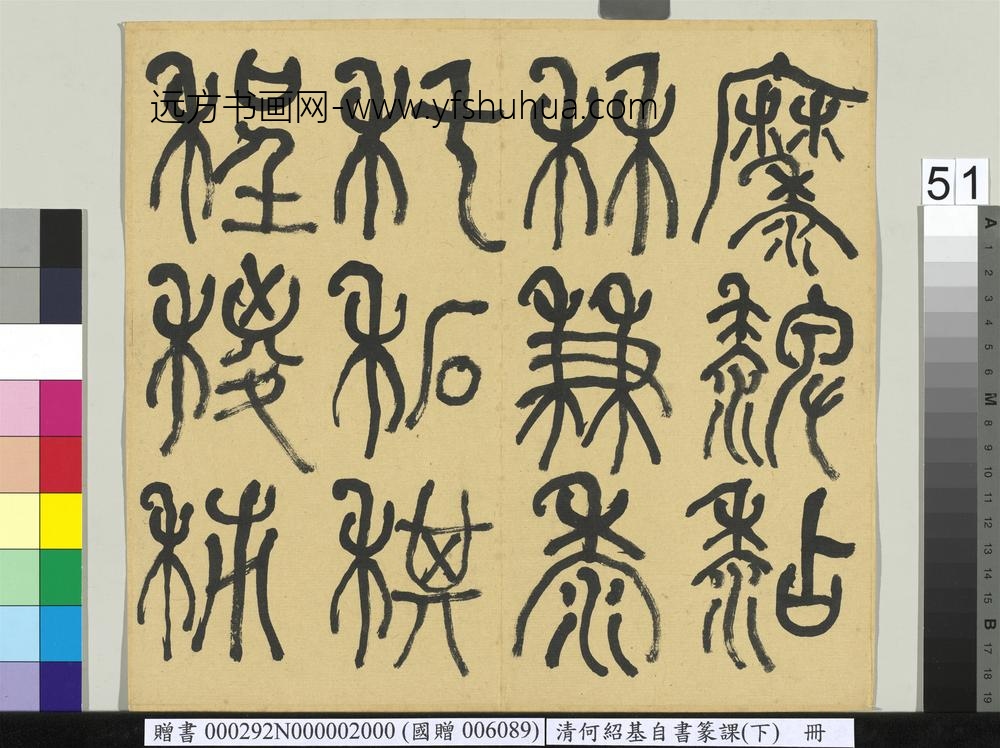 远方书画网-www.yfshuhua.com
程稯秭
秅䄷稘
秝兼黍
黏
51
A 1 2 3 4 5 6 M 8 9 10 11 12 13 14 15 B 17 18 19
贈書 000292N000002000 (國贈 006089)
清何紹基自書篆課(下) 冊